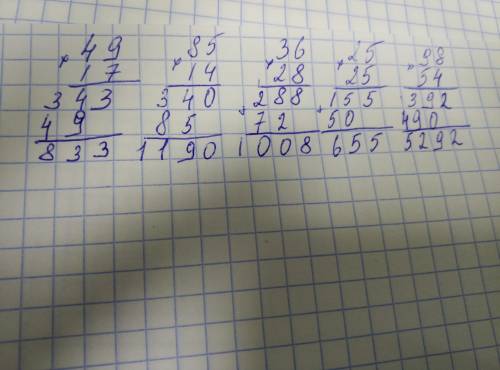 × 49 × 85 × 36 × 25 × 98
17 14 28 25 54
343 340 288 155 392
49 85 + 72 + 50 490
833 1190 1008 655 5292